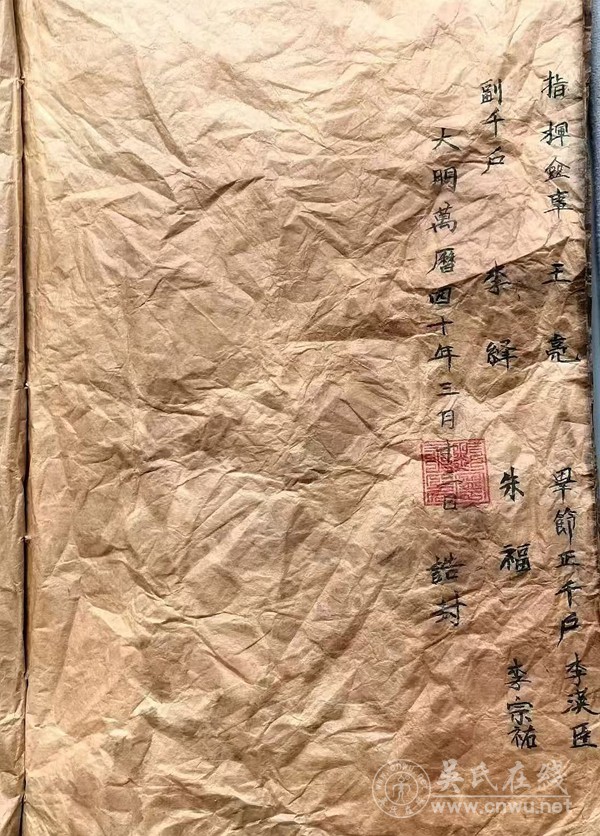 指揮僉事 王亮 畢節正千戶 李漢臣
副千戶 李繹 朱福 李宗祐
大明萬曆四十年三月十二日 誥封
吳氏在线
www.cnwu.net